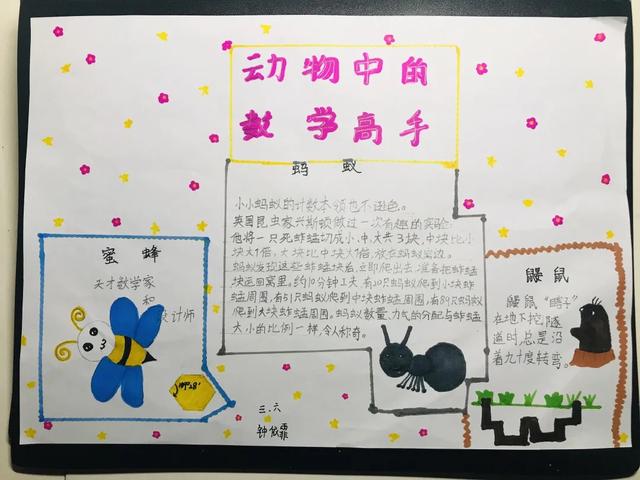 动物中的
数学高手
蚂蚁
小小蚂蚁的计数本领也不逊色。
英国昆虫家兴斯顿做过一次有趣的实验:
他将一只死蚱蜢切成小、中、大共3块,中块比小
块大1倍,大块比中块大1倍,放在蚂蚁窝边。
蚂蚁发现这些蚱蜢块后,立即爬出去,准备把蚱蜢
块运回窝里。约10分钟工夫,有20只蚂蚁爬到小块蚱
蜢周围,有51只蚂蚁爬到中块蚱蜢周围,有89只蚂蚁
爬到大块蚱蜢周围。蚂蚁数量、力气的分配与蚱蜢
大小的比例一样,令人称奇。
蜜蜂
天才数学家
和
设计师
109°28′
鼹鼠
鼹鼠“瞎子”
在地下挖隧
道时,总是沿
着九十度转弯。
三.六